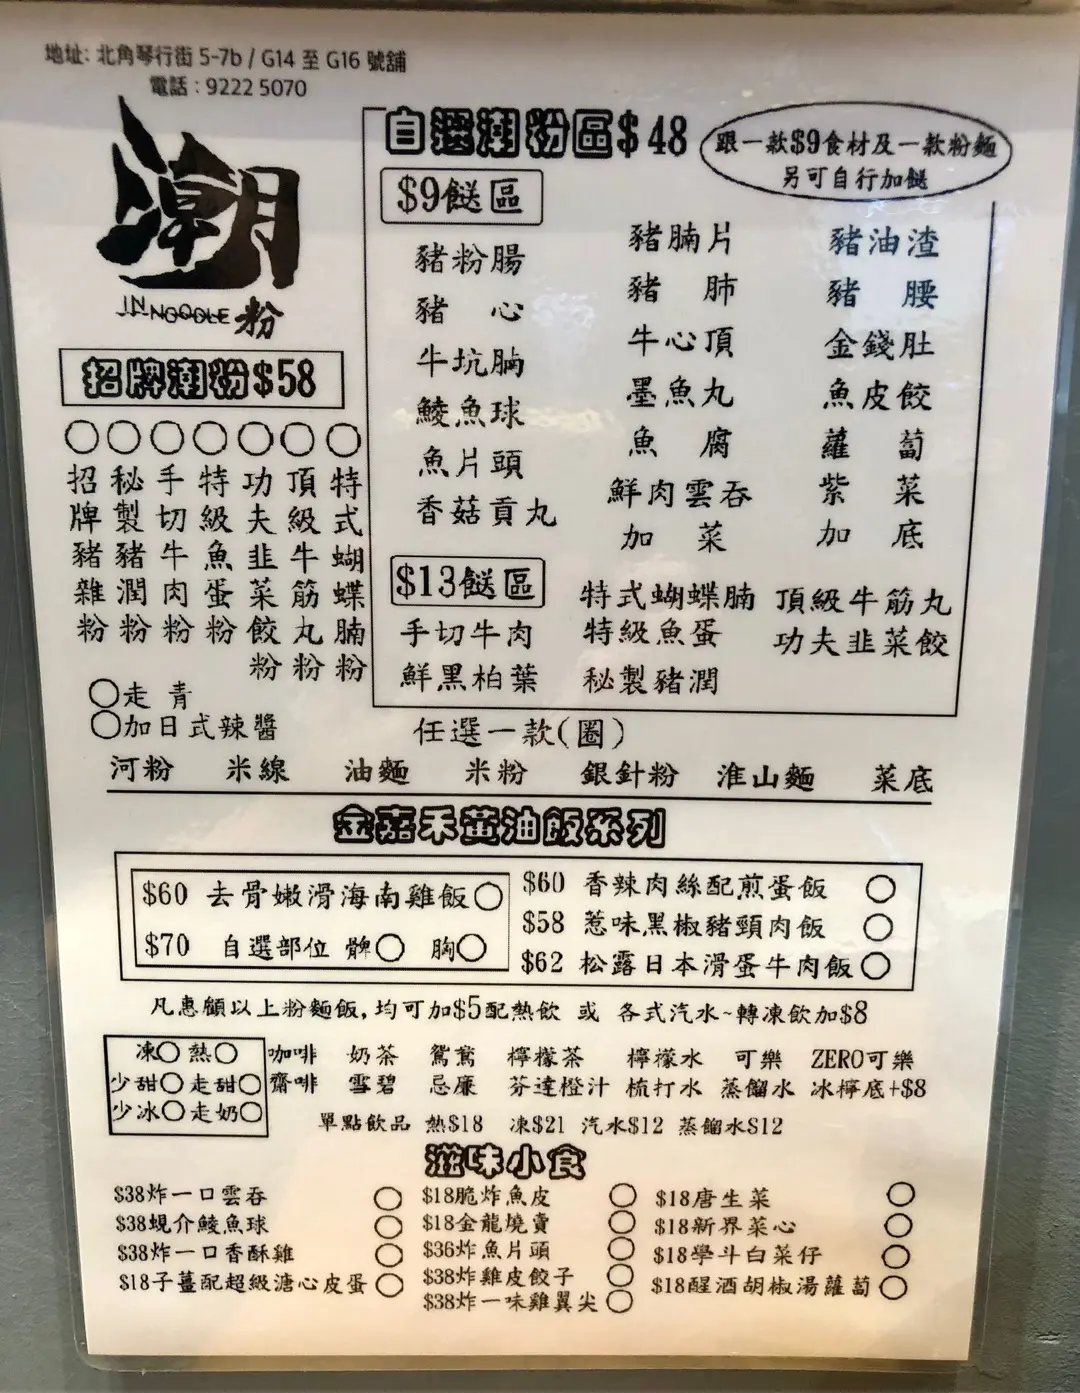 地址: 北角琴行街 5-7b / G14 至 G16 號舖
電話 : 9222 5070
潮
IN NOODLE 粉
招牌潮粉$58
招牌豬雜粉
秘製豬潤粉
手切牛肉粉
特級魚蛋粉
功夫韭菜餃粉
頂級牛筋丸粉
特式蝴蝶腩粉
走青
加日式辣醬
自選潮粉區$48
跟一款$9食材及一款粉麵
另可自行加餸
$9餸區
豬粉腸 豬腩片 豬油渣
豬心 豬肺 豬腰
牛坑腩 牛心頂 金錢肚
鯪魚球 墨魚丸 魚皮餃
魚片頭 魚腐 蘿蔔
香菇貢丸 鮮肉雲吞 紫菜
加菜 加底
$13餸區
特式蝴蝶腩 頂級牛筋丸
手切牛肉 特級魚蛋 功夫韭菜餃
鮮黑柏葉 秘製豬潤
任選一款(圈)
河粉 米線 油麵 米粉 銀針粉 淮山麵 菜底
金嘉禾黃油飯系列
$60 去骨嫩滑海南雞飯
$70 自選部位 髀 胸
$60 香辣肉絲配煎蛋飯
$58 惹味黑椒豬頸肉飯
$62 松露日本滑蛋牛肉飯
凡惠顧以上粉麵飯,均可加$5配熱飲 或 各式汽水~轉凍飲加$8
凍 熱
少甜 走甜
少冰 走奶
咖啡 奶茶 鴛鴦 檸檬茶 檸檬水 可樂 ZERO可樂
齋啡 雪碧 忌廉 芬達橙汁 梳打水 蒸餾水 冰檸底+$8
單點飲品 熱$18 凍$21 汽水$12 蒸餾水$12
滋味小食
$38炸一口雲吞
$38蜆介鯪魚球
$38炸一口香酥雞
$18子薑配超級溏心皮蛋
$18脆炸魚皮
$18金龍燒賣
$36炸魚片頭
$38炸雞皮餃子
$38炸一味雞翼尖
$18唐生菜
$18新界菜心
$18學斗白菜仔
$18醒酒胡椒湯蘿蔔